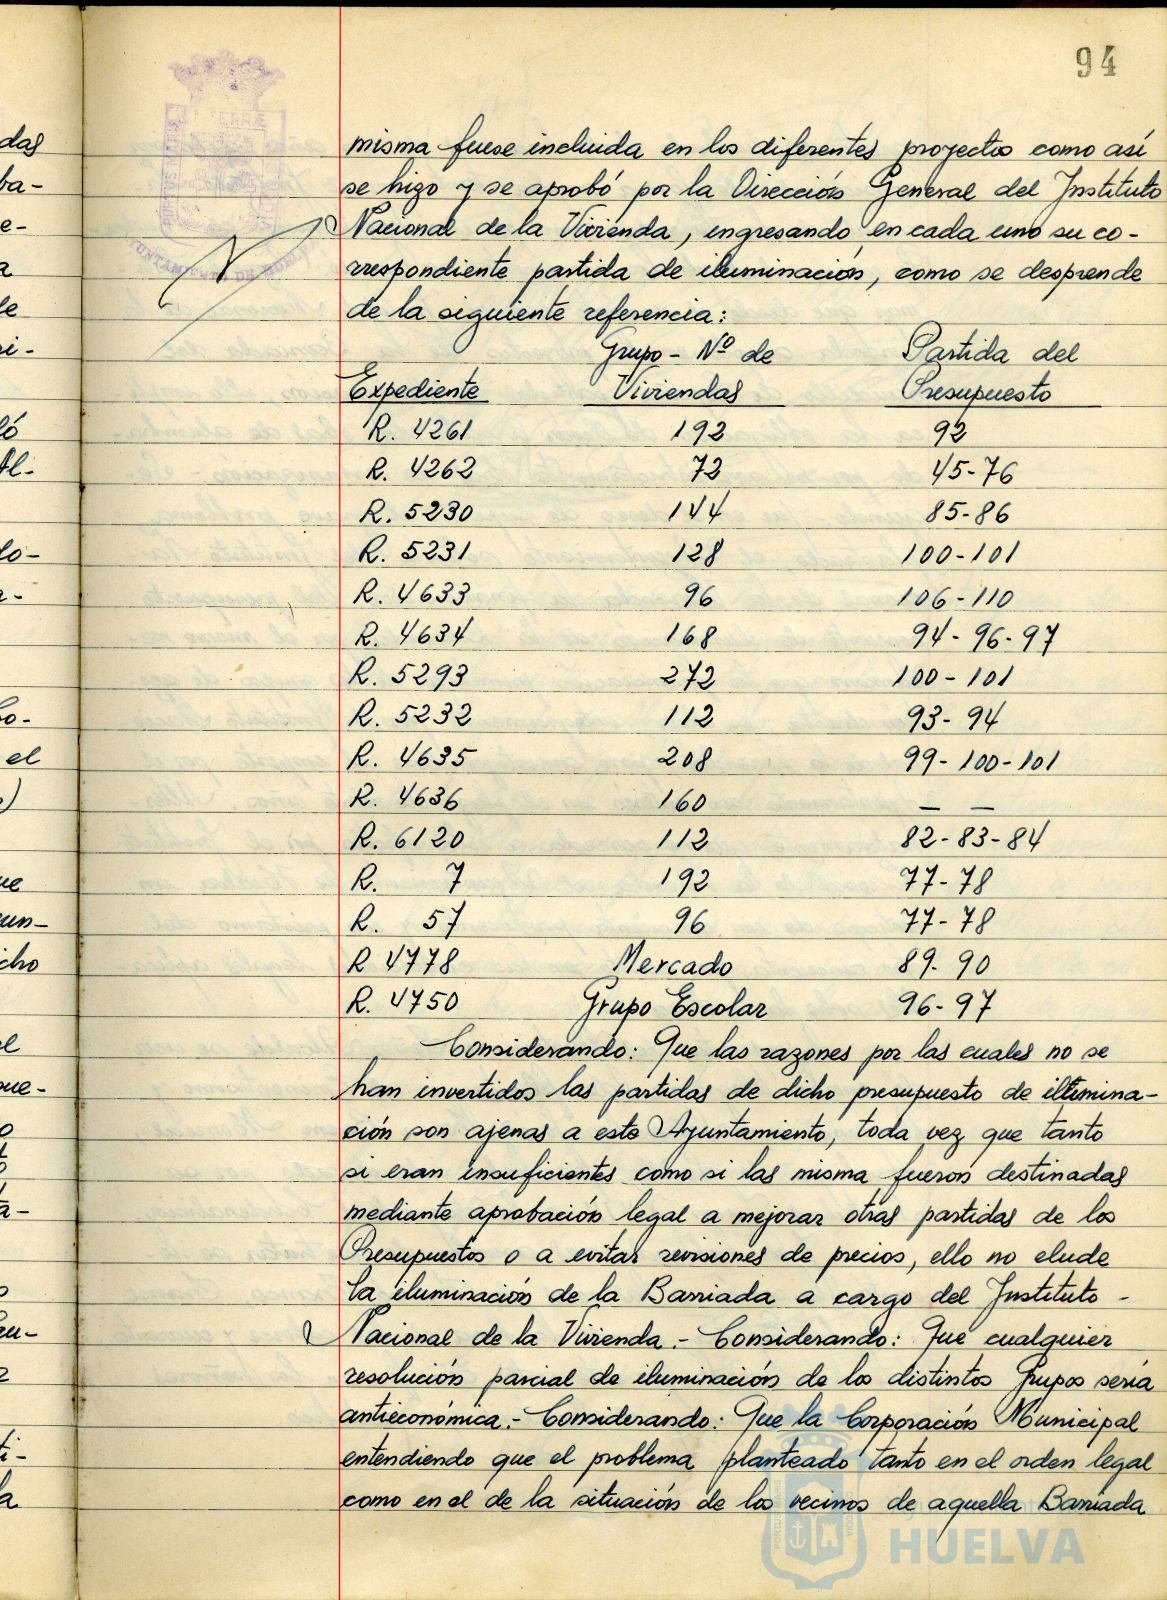 94
misma fuese incluida en los diferentes proyectos como así
se hizo y se aprobó por la Dirección General del Instituto
Nacional de la Vivienda, ingresando en cada uno su co-
rrespondiente partida de iluminación, como se desprende
de la siguiente referencia:
Grupo - Nº de Partida del
Expediente Viviendas Presupuesto
R. 4261 192 92
R. 4262 72 45-76
R. 5230 144 85-86
R. 5231 128 100-101
R. 4633 96 106-110
R. 4634 168 94-96-97
R. 5293 272 100-101
R. 5232 112 93-94
R. 4635 208 99-100-101
R. 4636 160 — —
R. 6120 112 82-83-84
R. 7 192 77-78
R. 57 96 77-78
R 4778 Mercado 89-90
R. 4750 Grupo Escolar 96-97
Considerando: Que las razones por las cuales no se
han invertidos las partidas de dicho presupuesto de ilumina-
ción son ajenas a este Ayuntamiento, toda vez que tanto
si eran insuficientes como si las misma fueron destinadas
mediante aprobación legal a mejorar otras partidas de los
Presupuestos o a evitar revisiones de precios, ello no elude
la iluminación de la Barriada a cargo del Instituto -
Nacional de la Vivienda.- Considerando: Que cualquier
resolución parcial de iluminación de los distintos Grupos sería
antieconómica.- Considerando: Que la Corporación Municipal
entendiendo que el problema planteado tanto en el orden legal
como en el de la situación de los vecinos de aquella Barriada
HUELVA